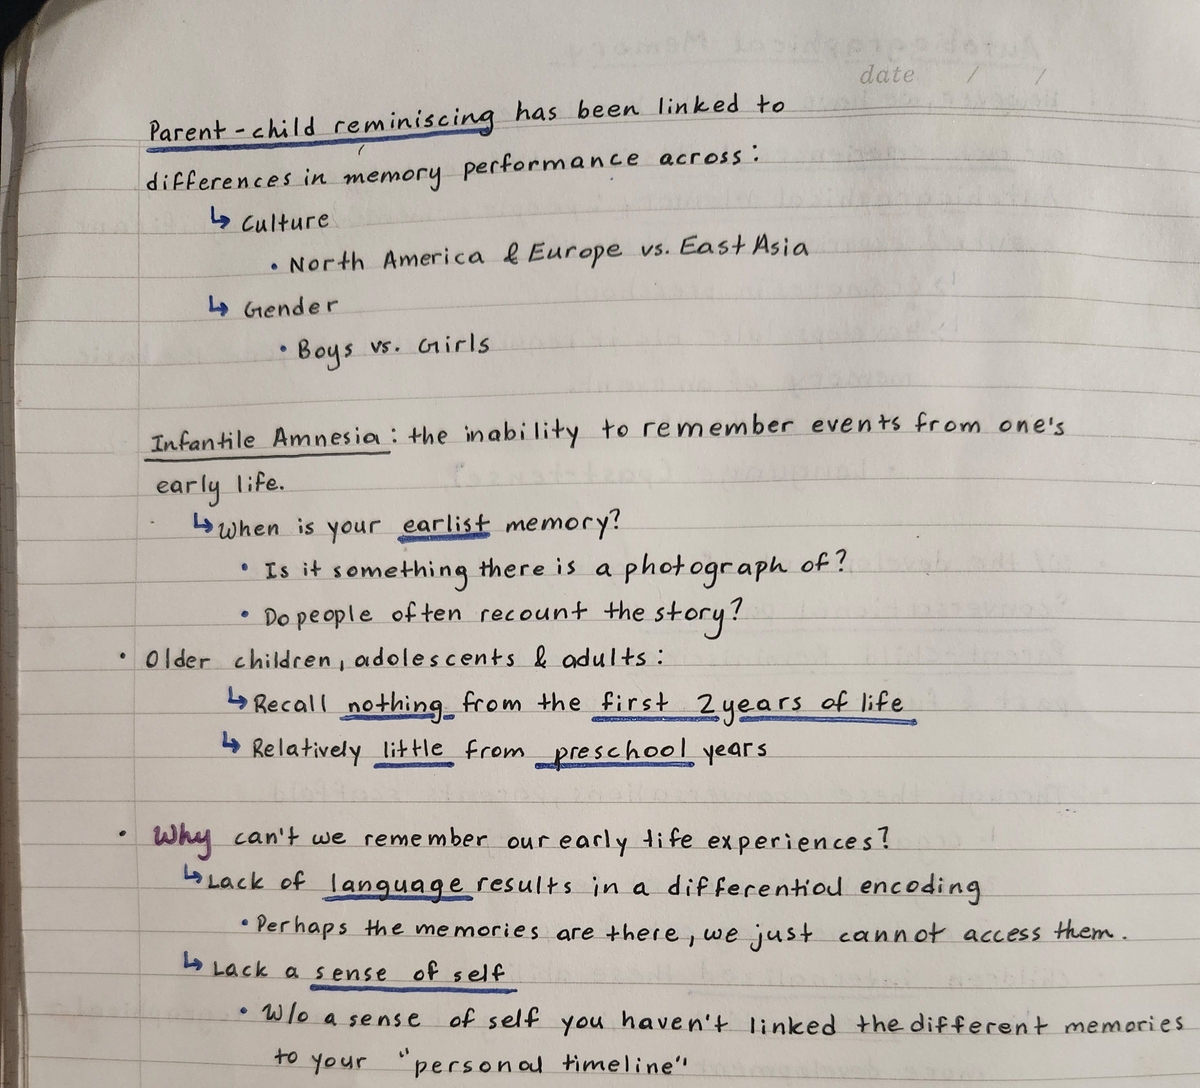 date / /
Parent-child reminiscing has been linked to
differences in memory performance across:
↳ Culture
• North America & Europe vs. East Asia
↳ Gender
• Boys vs. Girls
Infantile Amnesia: the inability to remember events from one's
early life.
↳ When is your earlist memory?
• Is it something there is a photograph of?
• Do people often recount the story?
• Older children, adolescents & adults:
↳ Recall nothing from the first 2 years of life
↳ Relatively little from preschool years
• Why can't we remember our early life experiences?
↳ Lack of language results in a differential encoding
• Perhaps the memories are there, we just cannot access them.
↳ Lack a sense of self
• W/o a sense of self you haven't linked the different memories
to your "personal timeline"